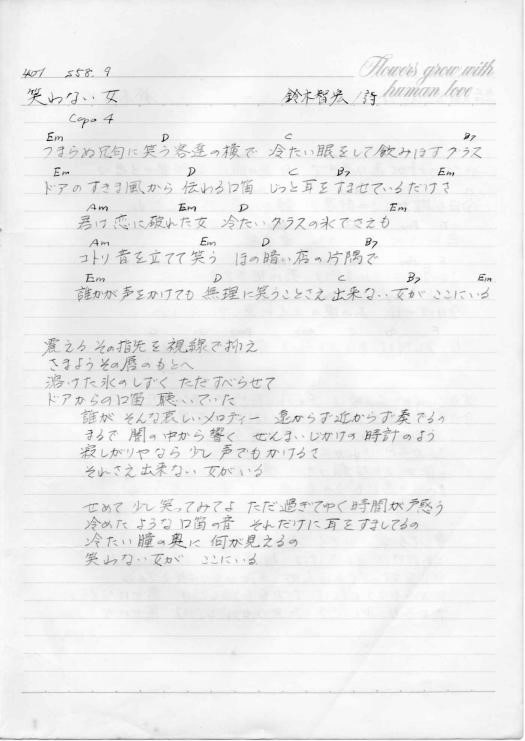 Flowers grow with
human love
407 S58.9
笑わない女 鈴木智宏/詩
Capo 4
Em D C B7
つまらぬ冗句に笑う客達の横で 冷たい眼をして飲みほすグラス
Em D C B7 Em
ドアのすきま風から 伝わる口笛 じっと耳をすませているだけさ
Am Em D Em
君は恋に破れた女 冷たいグラスの氷でさえも
Am Em D B7
コトリ音を立てて笑う ほの暗い店の片隅で
Em D C B7 Em
誰かが声をかけても 無理に笑うことさえ 出来ない女が ここにいる
震える その指先を 視線で抑え
さまようその唇のもとへ
溶けた氷のしずく ただすべらせて
ドアからの口笛 聴いていた
誰が そんな哀しいメロディー 遠からず近からず奏でるの
まるで 闇の中から響く ぜんまいじかけの時計のよう
寂しがりやなら 少し声でもかけるさ
それさえ出来ない 女がいる
せめて 少し笑ってみてよ ただ過ぎてゆく時間が戸惑う
冷めたような口笛の音 それだけに耳をすましてるの
冷たい瞳の奥に 何が見えるの
笑わない女が ここにいる